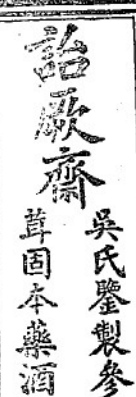 詒厥齋
吳氏鑒製參
茸固本藥酒